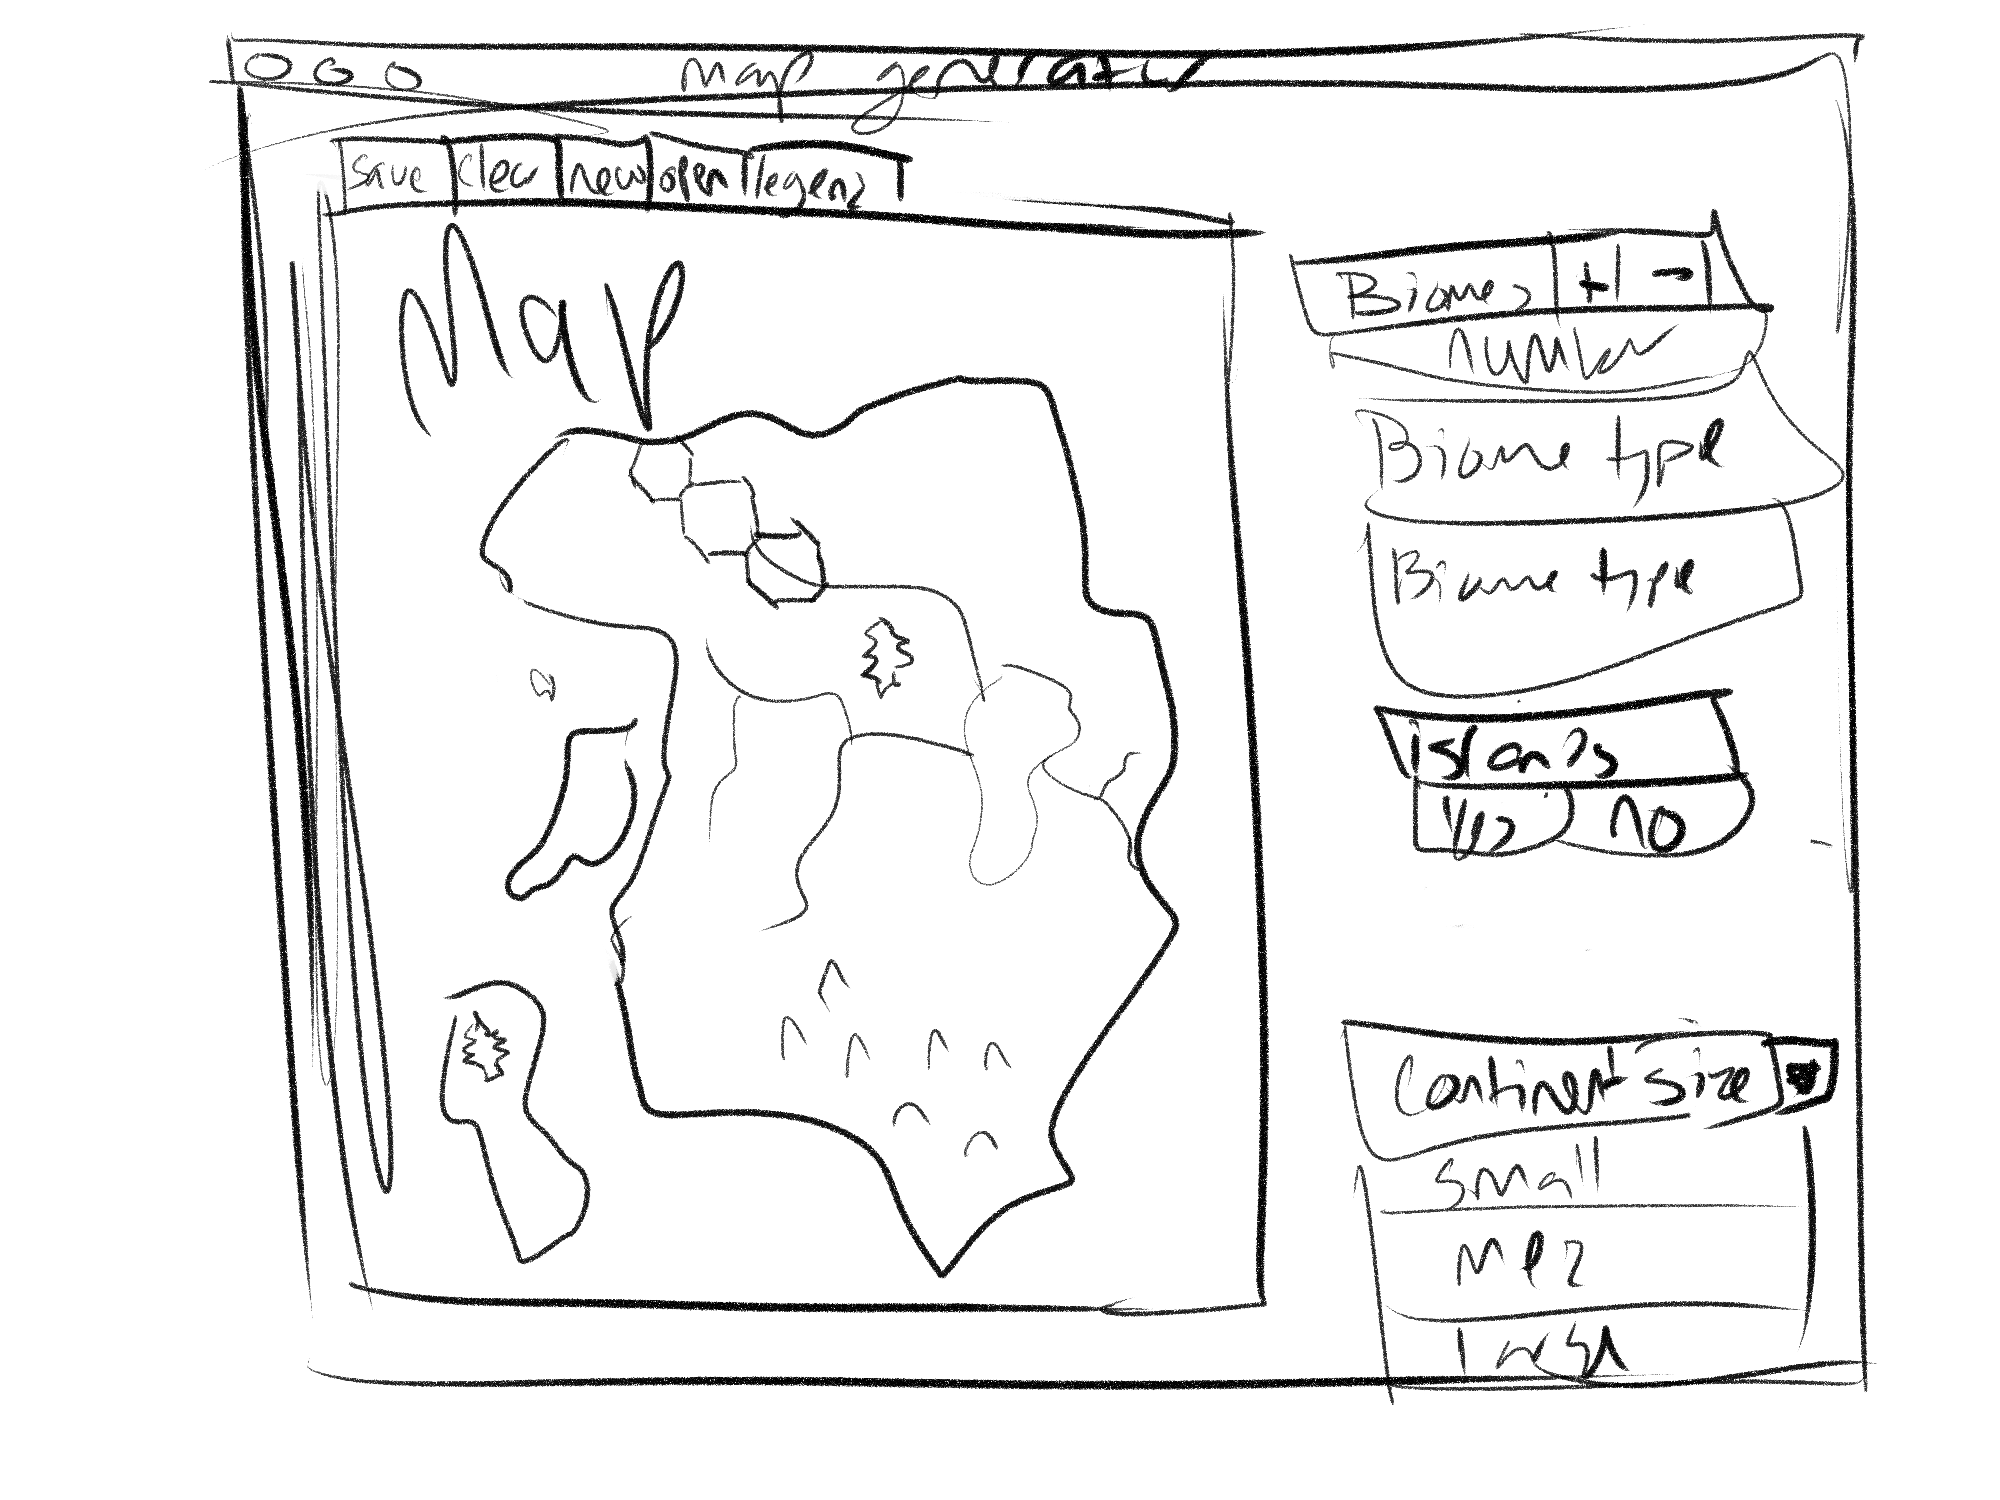 map generator
save clear new open legend
Map
Biomes + -
number
Biome type
Biome type
islands
yes no
Continent size
small
med
large